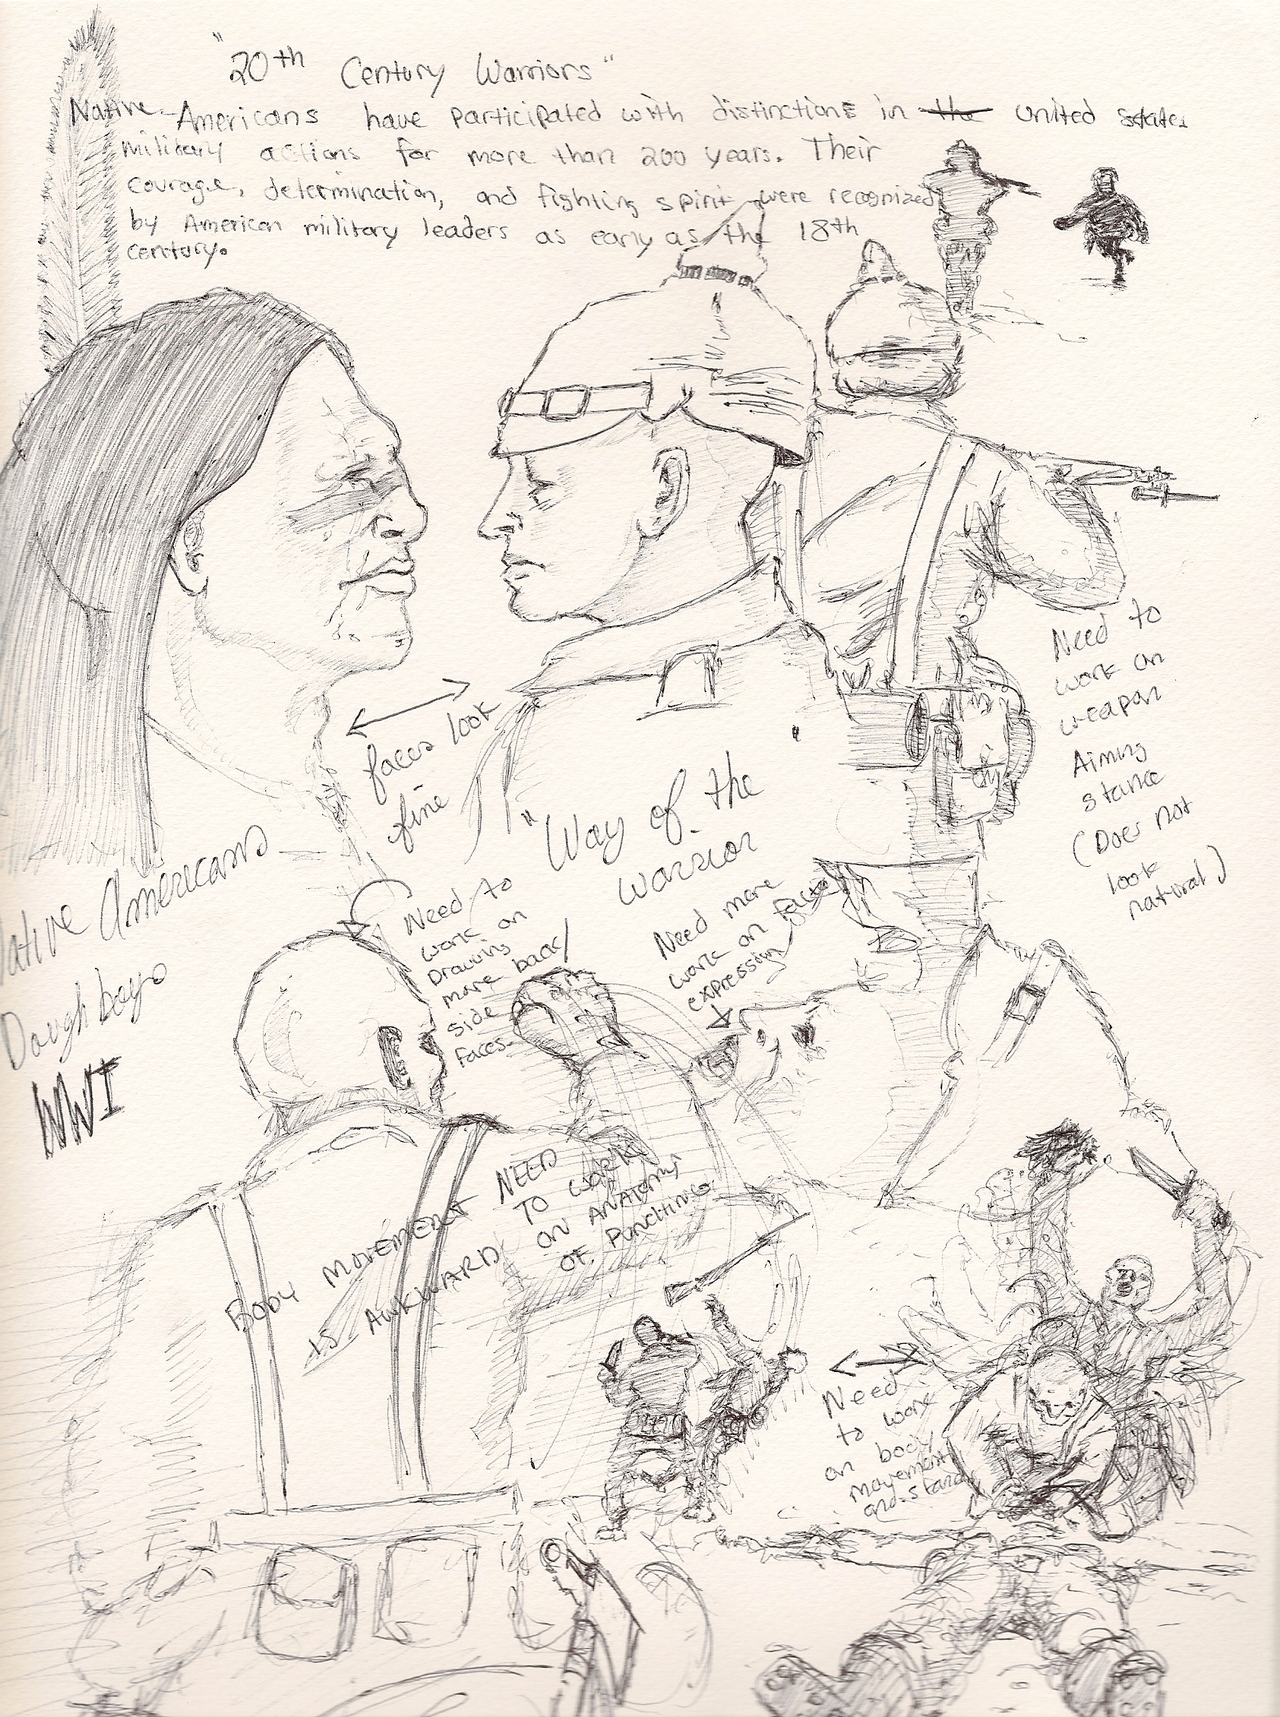 "20th Century Warriors"
Native Americans have participated with distinctions in the united states
military actions for more than 200 years. Their
courage, determination, and fighting spirit were recognized
by American military leaders as early as the 18th
century.
faces look
fine
Need to
work on
weapon
Aiming
stance
(Does not
look
natural)
"Way of the
Warrior
Native Americans
Doughboys
WWI
Need to
work on
Drawing
more back/
side
faces.
Need more
work on facial
expression
BODY MOVEMENT
IS AWKWARD
NEED
TO WORK
ON ANATOMY
OF PUNCHING
Need
to work
on body
movement
and stance